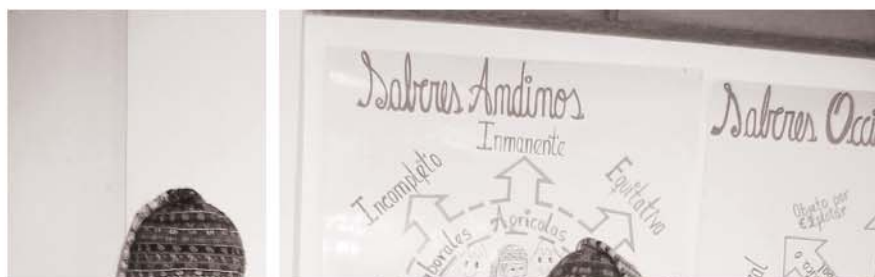 Saberes Andinos
Inmanente
Incompleto
Equitativa
Agrícolas
Saberes
Objeto por
Explotar